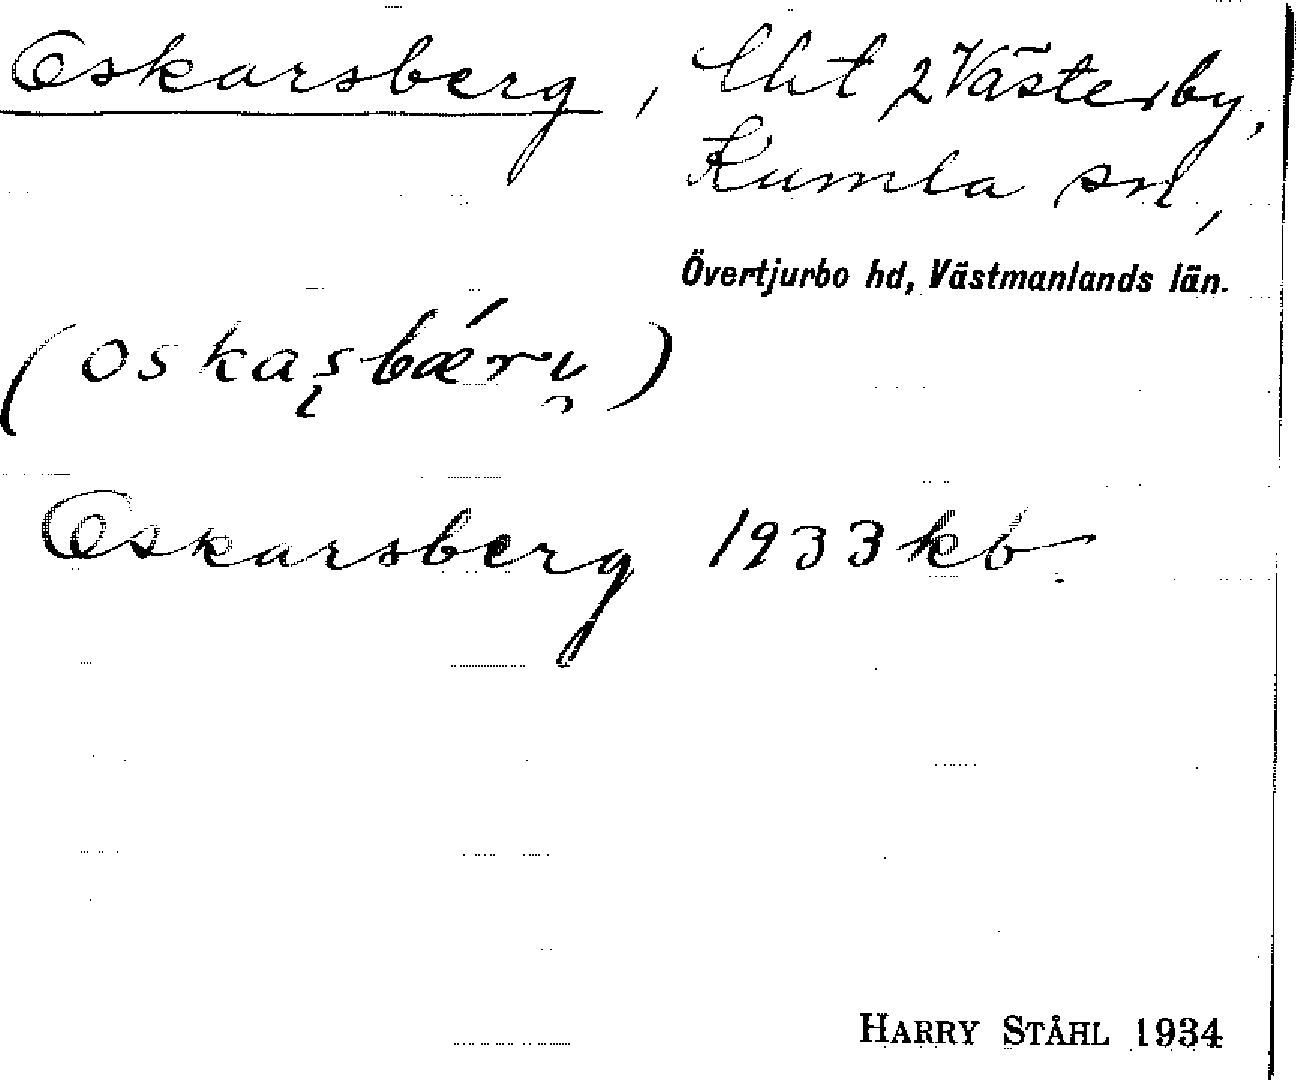 Oskarsberg, lht 2 Västerby,
Kumla sn,
Övertjurbo hd, Västmanlands län.
Oskarsberg 1933 kb.
HARRY STÅHL 1934